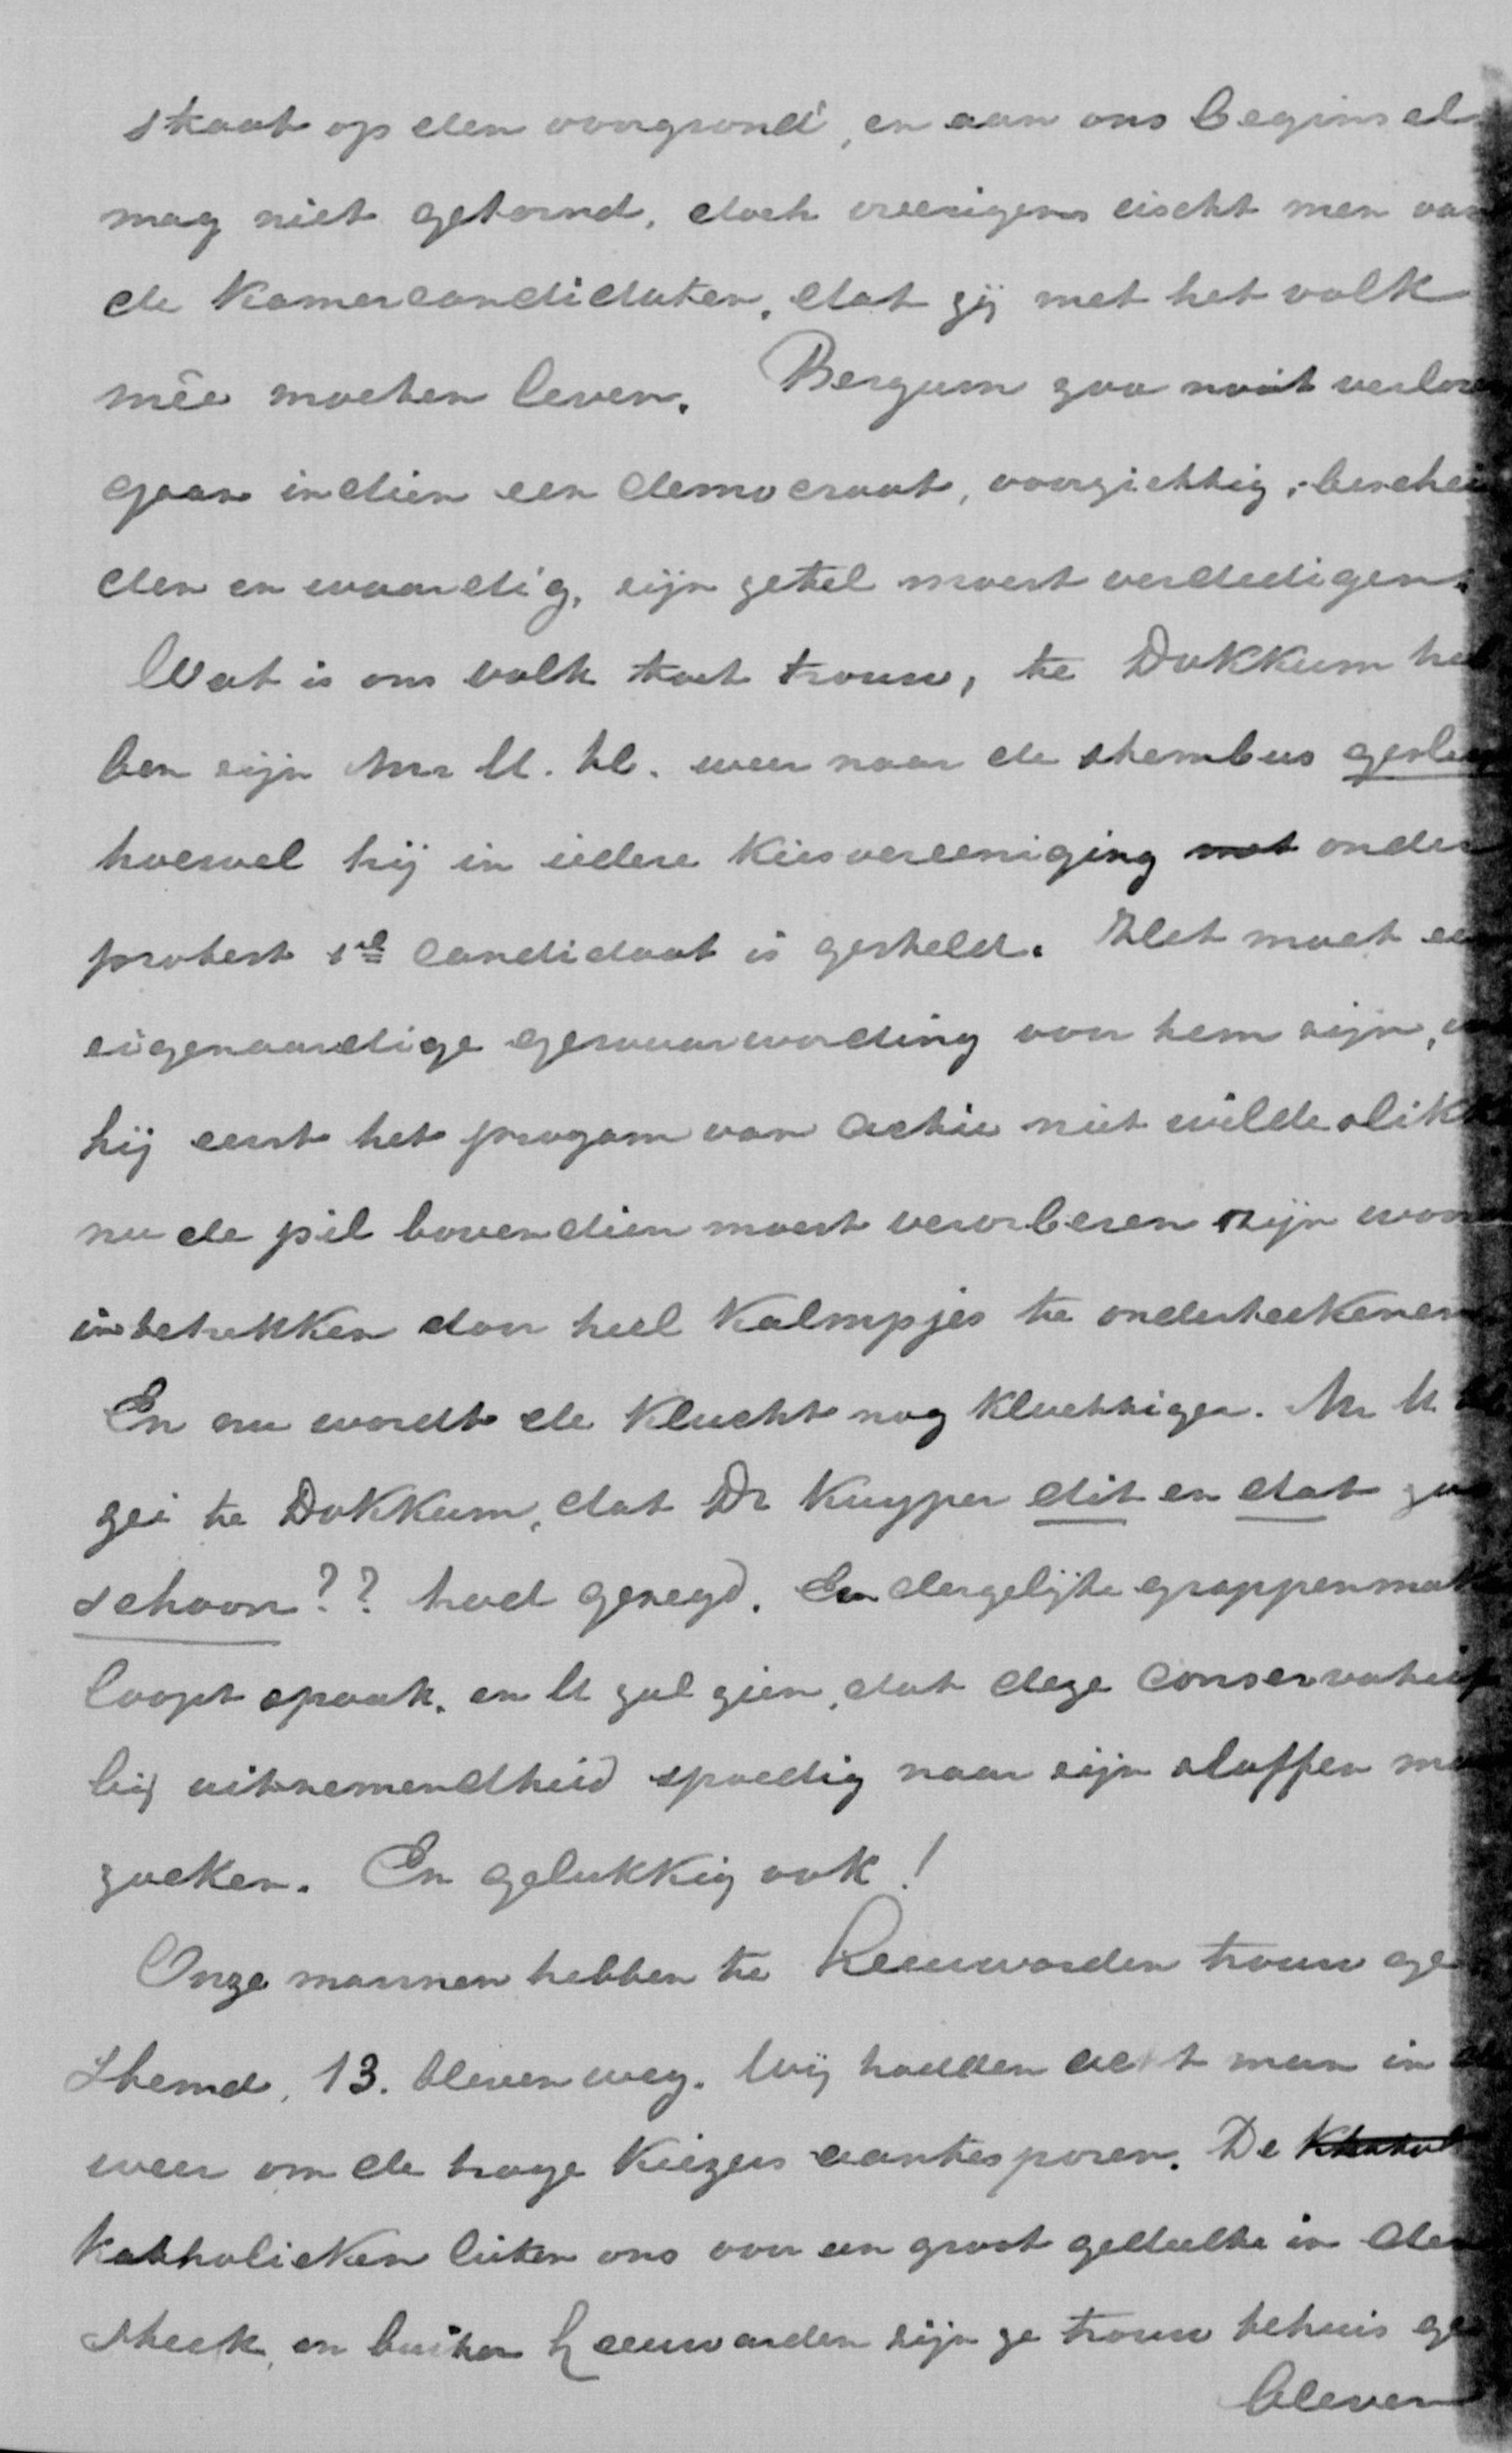 staat op den voorgrond, en aan ons beginsel
mag niet getornd, doch overigens eischt men van
de Kamercandidaten, dat zij met het volk
mêe moeten leven. Bergum zou nooit verloren
gaan indien een democraat, voorzichtig, beschei
den en waardig, zijn zetel moest verdedigen.
Wat is ons volk toch trouw, te Dokkum heb
ben zij Mr U. H. weer naar de stembus
hoewel hij in iedere Kiesvereeniging onder
protest candidaat is gesteld. Het moet een
eigenaardige gewaarwording voor hem zijn,
hij eerst het progam van actie niet wilde slikk
nu de pil bovendien moest verorberen zijn
intetrekken door heel Kalmpjes te onderteekenen
En nu wordt de Klucht nog Kluchtiger. Mr U.
zei te Dokkum, dat Dr Kuyper dit en dat zoo
schoon?? had gezegd. En dergelijke grappenmak
loopt spaak, en U zal zien, dat deze conservatief
bij uitnemendheid spoedig naar zijn sloffen
zoeken. En gelukkig ook!
Onze mannen hebben te Leeuwarden trouw ge
stemd, 13. bleven weg. Wij hadden acht man in
weer om de trage Kiezers aantesporen. De
Katholieken lieten ons voor een groot gedeelte in den
steek, en buiten Leeuwarden zijn ze trouw tehuis ge
bleven